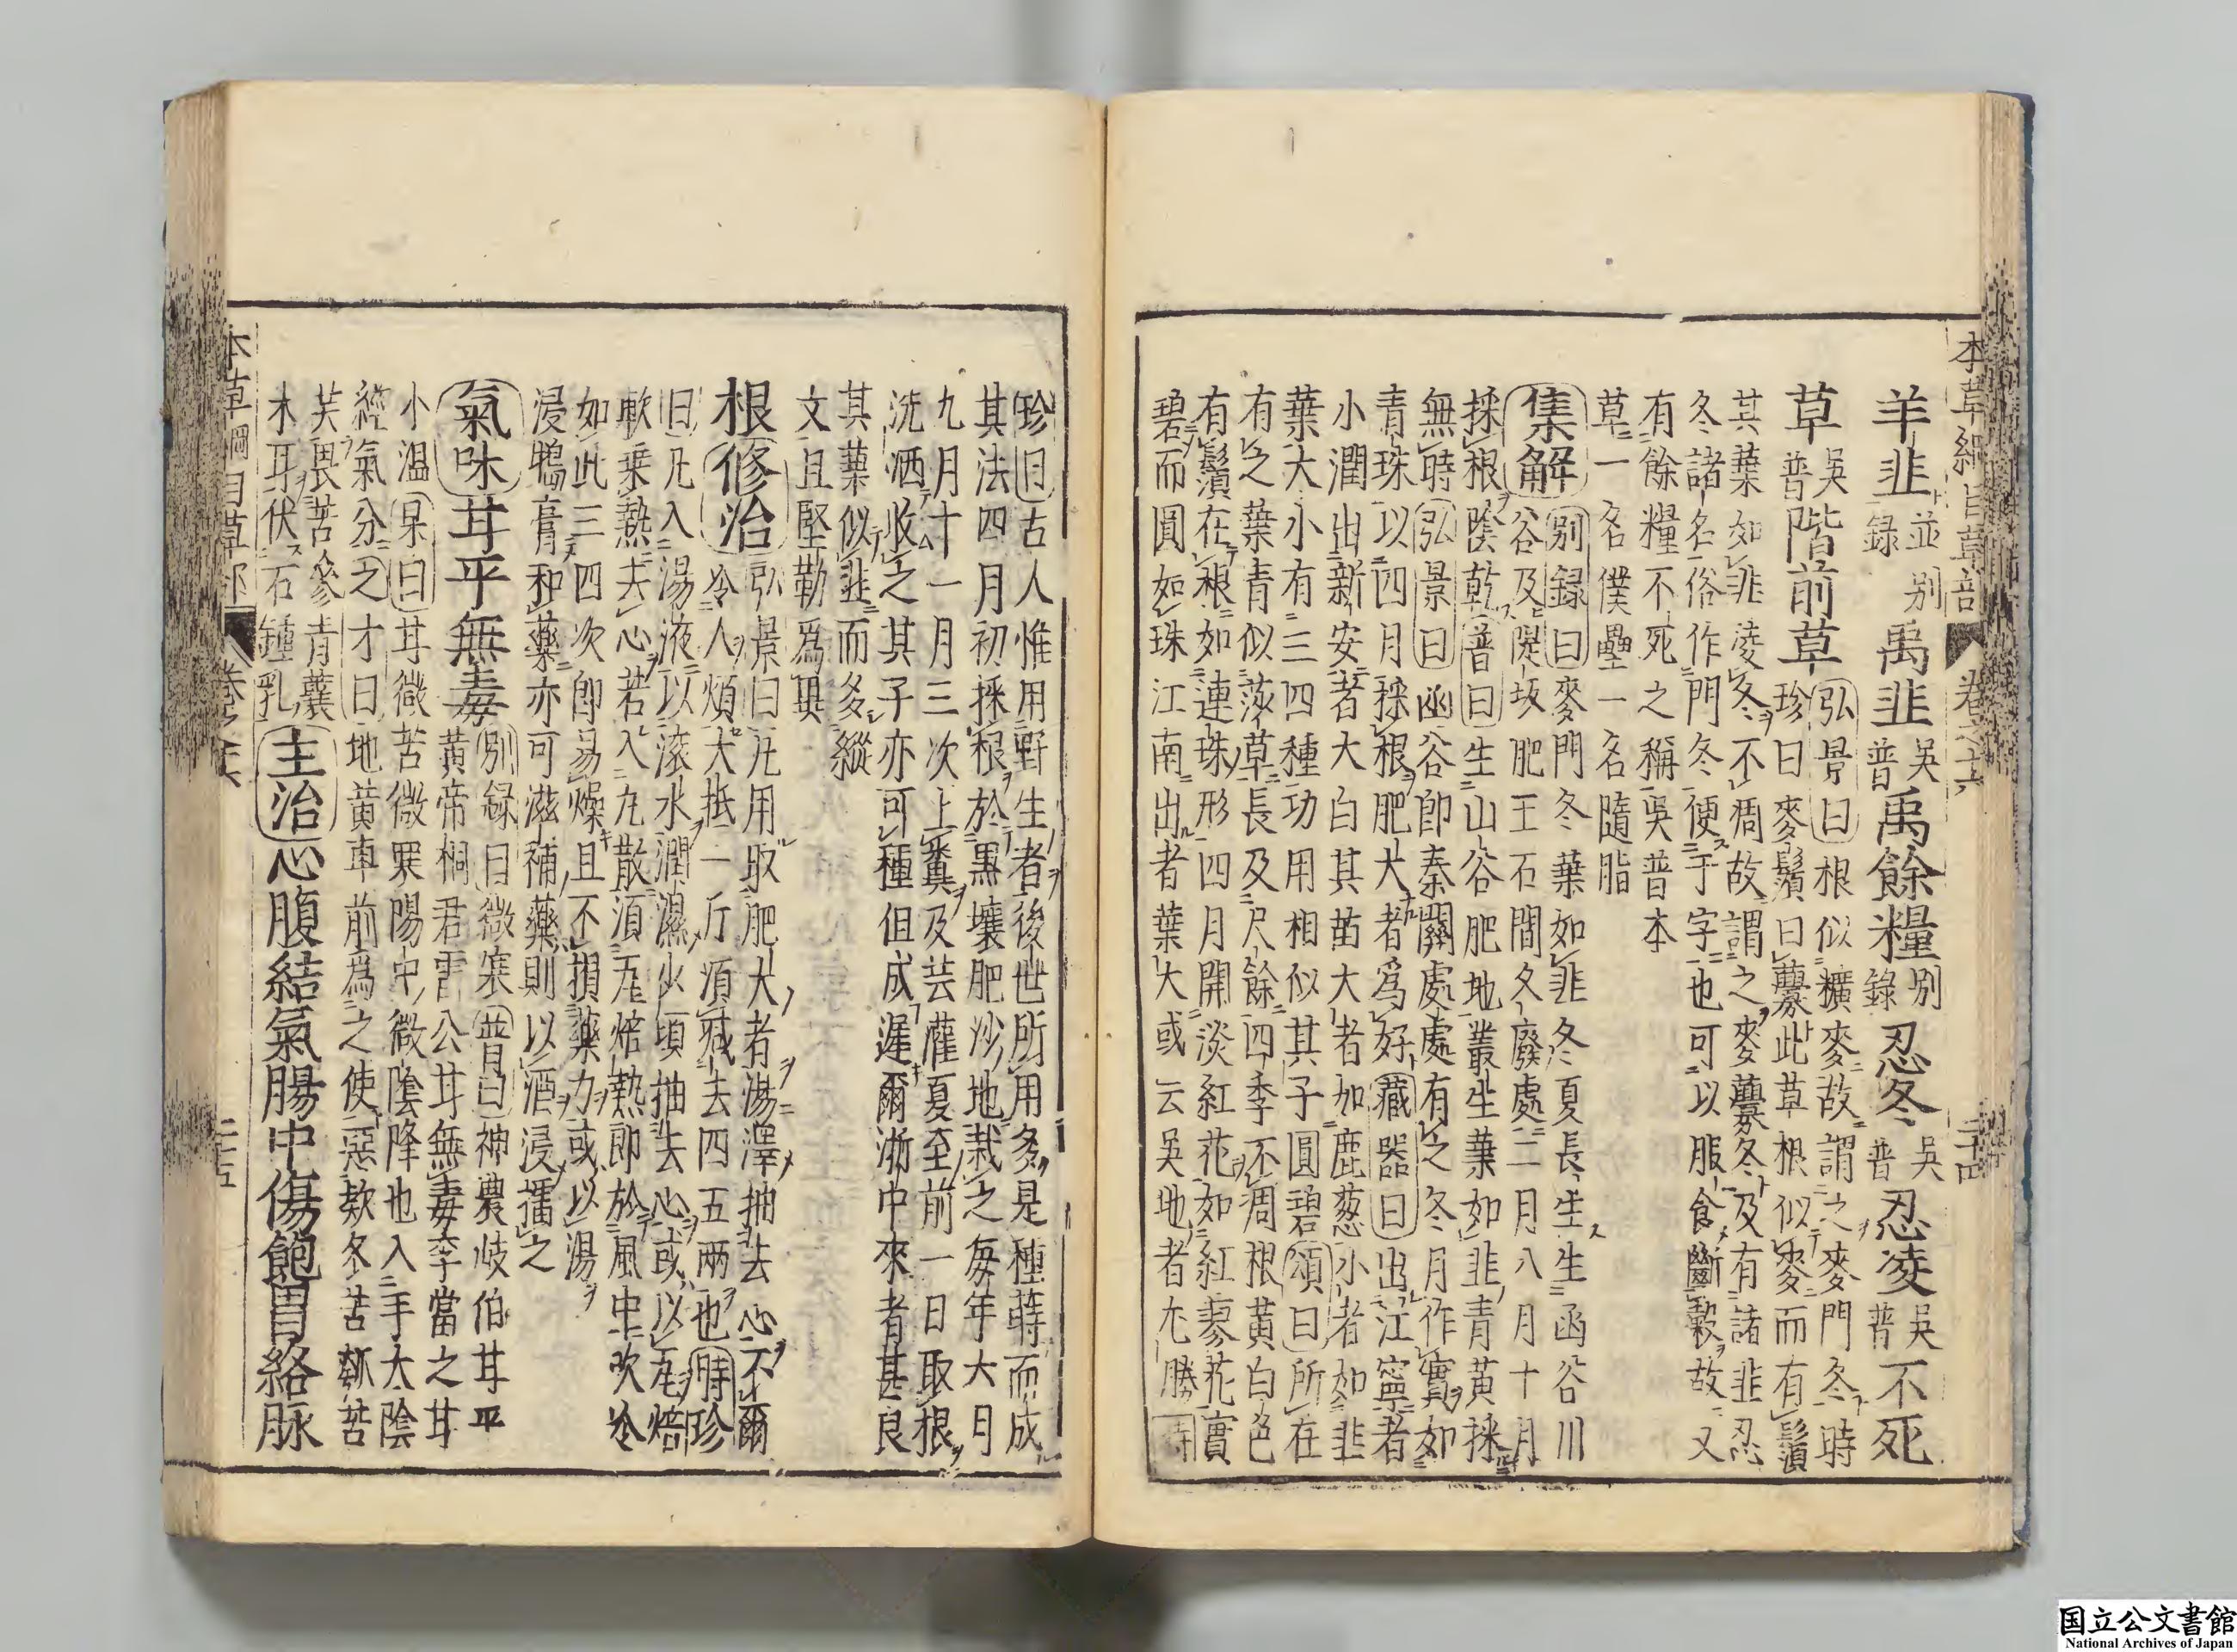 本草綱目草部 卷之十六 二十四
羊韭並別錄禹韭吳普禹餘糧別錄忍冬吳普忍凌吳普不死
草吳普階前草弘景曰根似穬麥故謂之麥門冬時
珍曰麥鬚曰虋此草根似麥而有鬚
其葉如韭凌冬不凋故謂之麥虋冬及有諸韭忍
冬諸名俗作門冬便于字也可以服食斷穀故又
有餘糧不死之稱吳普本
草一名僕壘一名隨脂
集解別錄曰麥門冬葉如韭冬夏長生生函谷川
谷及隄坂肥土石間久廢處二月八月十月
採根陰乾普曰生山谷肥地叢生葉如韭青黃採
無時弘景曰函谷卽秦關處處有之冬月作實如
青珠以四月採根肥大者爲好藏器曰出江寧者
小潤出新安者大白其苗大者如鹿葱小者如韭
葉大小有三四種功用相似其子圓碧頌曰所在
有之葉青似莎草長及尺餘四季不凋根黃白色
有鬚在根如連珠形四月開淡紅花如紅蓼花實
碧而圓如珠江南出者葉大或云吳地者尤勝時
珍曰古人惟用野生者後世所用多是種蒔而成
其法四月初採根於黑壤肥沙地栽之每年大月
九月十一月三次上糞及芸灌夏至前一日取根
洗洒收之其子亦可種但成遲爾浙中來者甚良
其葉似韭而多縱
文且堅勒爲異
根修治弘景曰凡用取肥大者湯澤抽去心不爾
令人煩大抵一斤須减去四五兩也時珍
曰凡入湯液以滾水潤濕少頃抽去心或以瓦焙
軟乗熱去心若入丸散須瓦焙熱卽於風中吹冷
如此三四次卽易燥且不損藥力或以湯
浸鴨膏和藥亦可滋補藥則以酒浸擂之
氣味甘平無毒別録曰微寒普曰神農岐伯甘平
黃帝桐君雷公甘無毒李當之甘
小溫杲曰甘微苦微寒陽中微陰降也入手太陰
經氣分之才曰地黃車前爲之使惡款冬苦瓠苦
芙畏苦參青蘘
木耳伏石鍾乳主治心腹結氣腸中傷飽胃絡脉
本草綱目草部 卷之十六 二十五
国立公文書館
National Archives of Japan